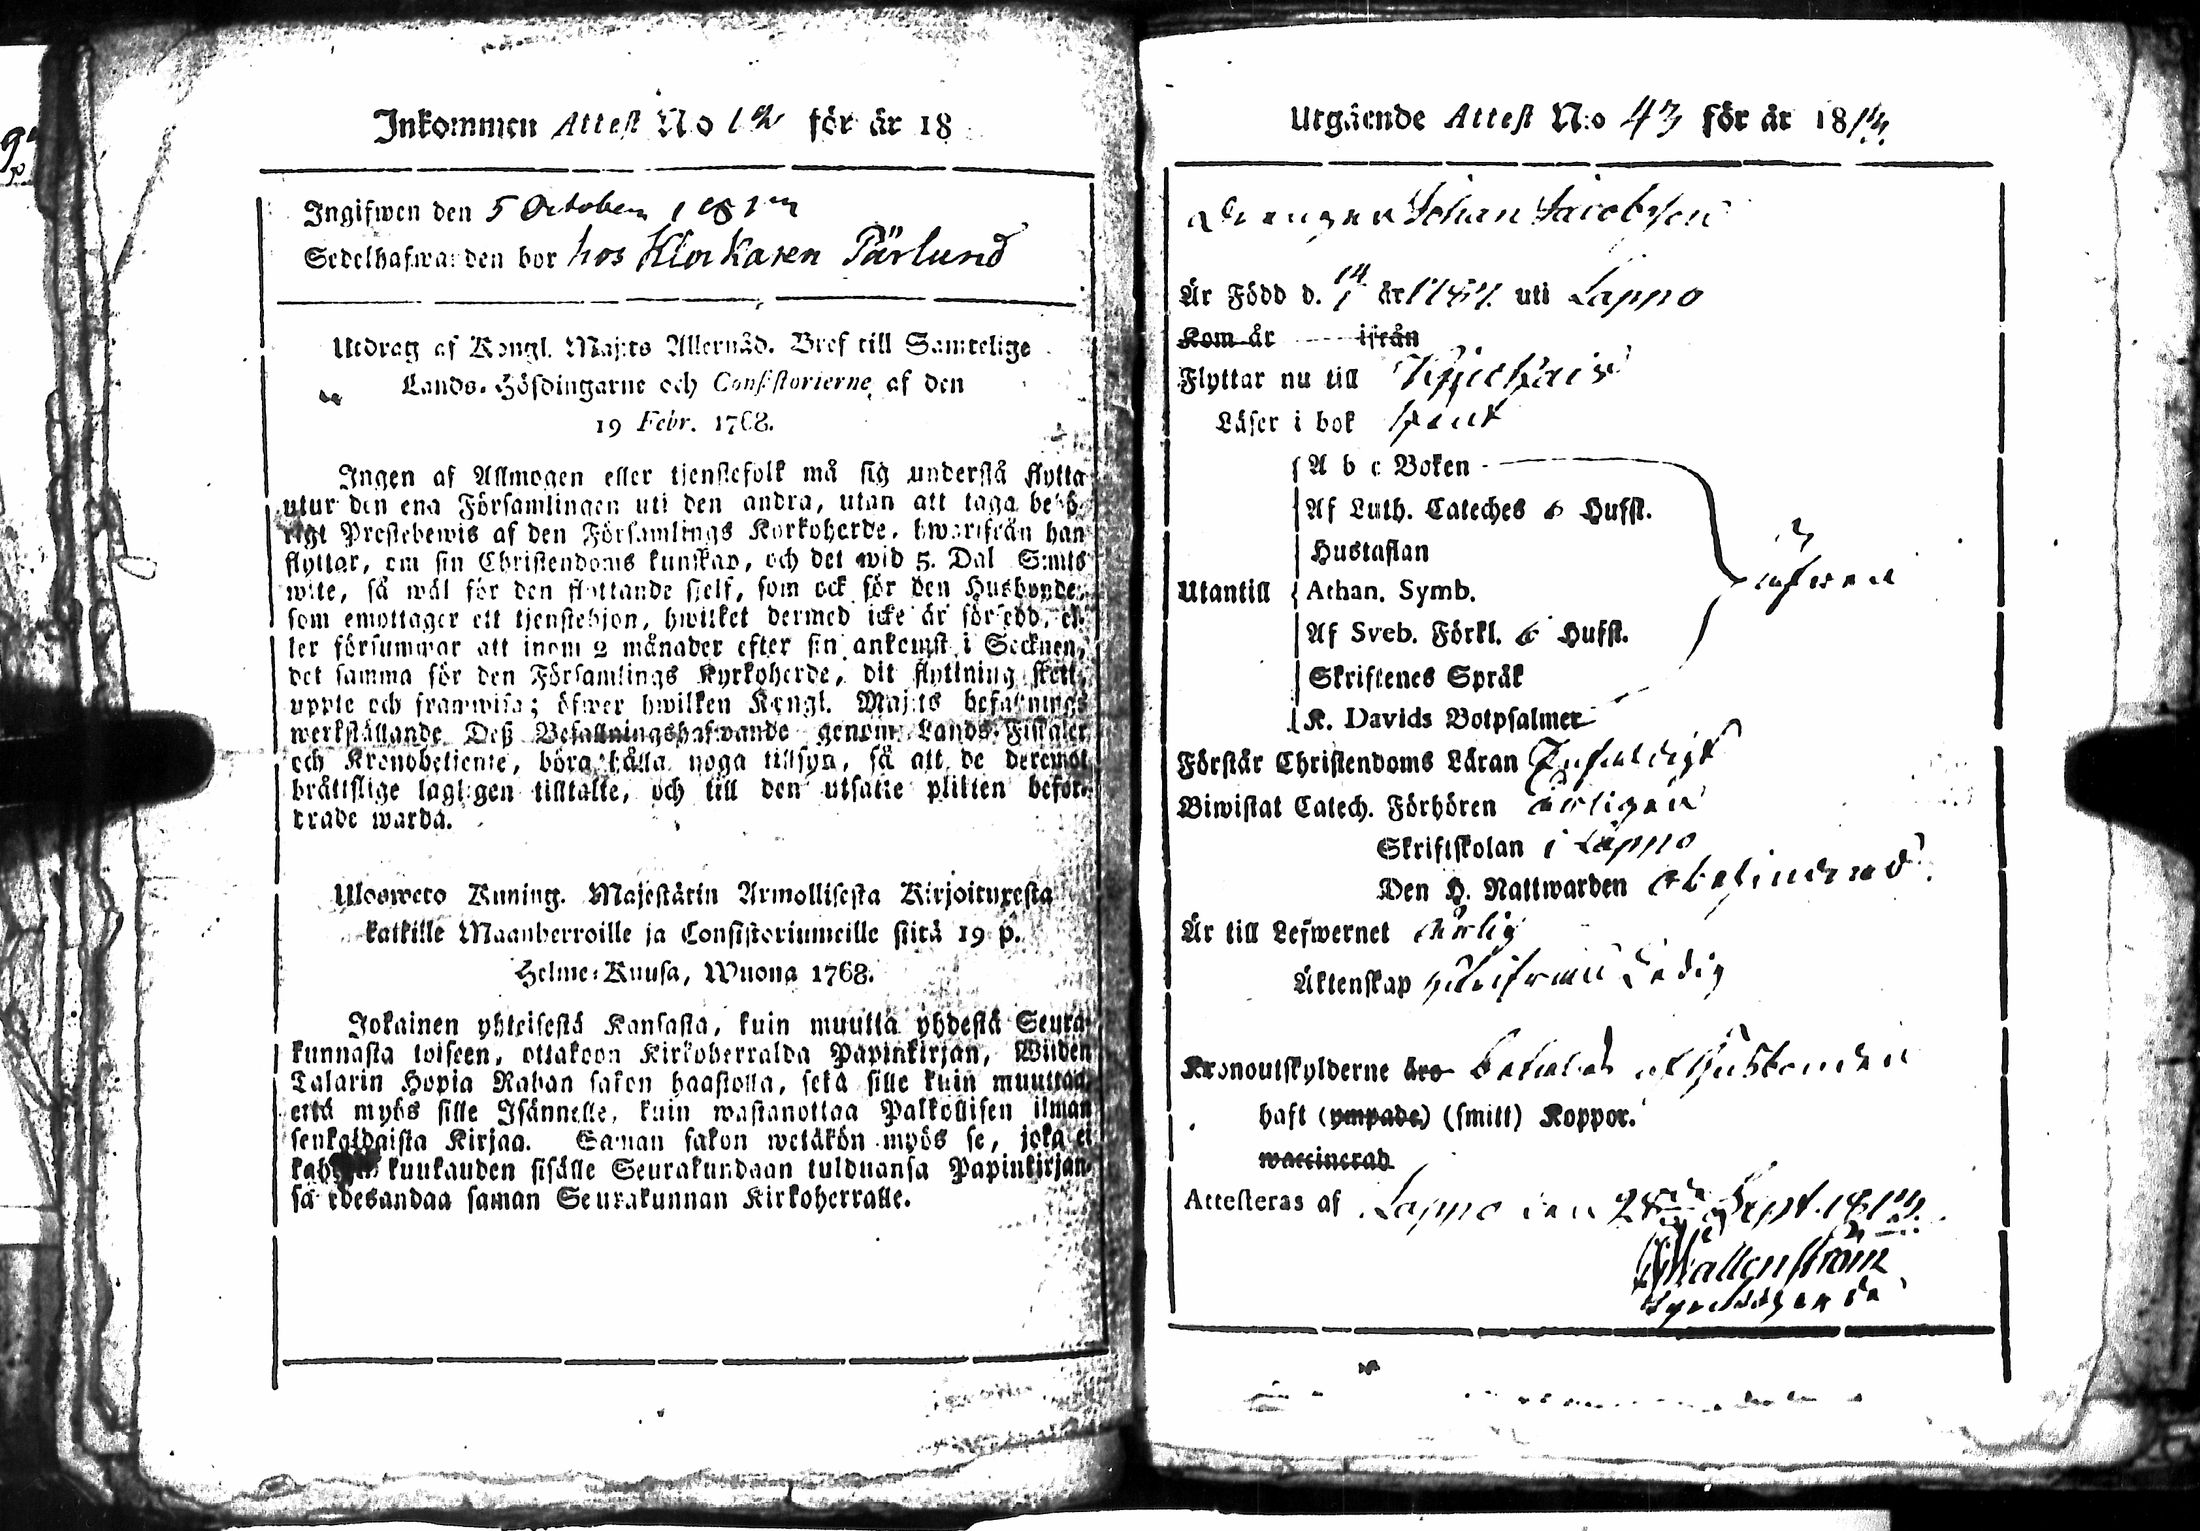 Inkommen Attest No 12 för år 18
Ingifwen den 5 October
Sedelhafwanden bor hos Klockaren Pärlund
Utdrag af Kongl. Maj:ts Allernåd. Bref till Samtelige
Lands-Höfdingarne och Consistorierne af den
19 Febr. 1768.
Ingen af Allmogen eller tjenstefolk må sig understå flytta
utur den ena Församlingen uti den andra, utan att taga behö-
rigt Prestebewis af den Församlings Kyrkoherde, hwarifrån han
flyttar, om sin Christendoms kunskap, och det wid 5. Dal S:mts
wite, så wäl för den flyttande sjelf, som ock för den Husbonde,
som emottager ett tjenstehjon, hwilket dermed icke är försedd, el-
ler försummar att inom 2 månader efter sin ankomst i Socknen,
det samma för den Församlings Kyrkoherde, dit flyttning skett,
uppte och framwisa; öfwer hwilken Kongl. Maj:ts befallnings
werkställande Deß Befallningshafwande genom Lands-Fiskaler
och Kronobetjente, böra hålla noga tillsyn, så att de deremot
bråttslige lagligen tilltalte, och till den utsatte plikten befor-
drade warda.
Uloswero Kuning. Majestärin Armollisesta Kirjoituxesta
kaikille Maanherroille ja Consistoriumeille siitä 19 p.
Helme-Kuusa, Wuona 1768.
Jokainen yhteisestä Kansasta, kuin muutta yhdestä Seura-
kunnasta toiseen, ottakoon Kirkoherralda Papinkirjan, Wiiden
Talarin Hopia Rahan sakon haastolla, sekä sille kuin muuttaa,
että myös sille Isännelle, kuin wastanottaa Palkollisen ilman
senkaldaista Kirjaa. Saman sakon wetäkön myös se, joka ei
kuukauden sisälle Seurakundaan tulduansa Papinkirjan-
sa edesandaa saman Seurakunnan Kirkoherralle.
Utgående Attest N:o 43 för år 1814.
Drengen Johan Jacobsson
Är Född d. 14/1 år 1784. uti Lappo
Kom år ifrån
Flyttar nu till
Läser i bok
A b c Boken
Af Luth. Cateches 6 Hufst.
Hustaflan
Utantill Athan. Symb.
Af Sveb. Förkl. 6 Hufst.
Skriftenes Språk
K. Davids Botpsalmer
Förstår Christendoms Läran Enfaldigt
Biwistat Catech. Förhören årligen
Skriftskolan i Lappo
Den H. Nattwarden
Är till Lefwernet ärlig
Äktenskap Ledig
Kronoutskylderne äro betalas af Husbonden
haft (ympade) (smitt) Koppor.
waccinerad
Attesteras af Lappo den 28de Sept. 1814.
Wallenström